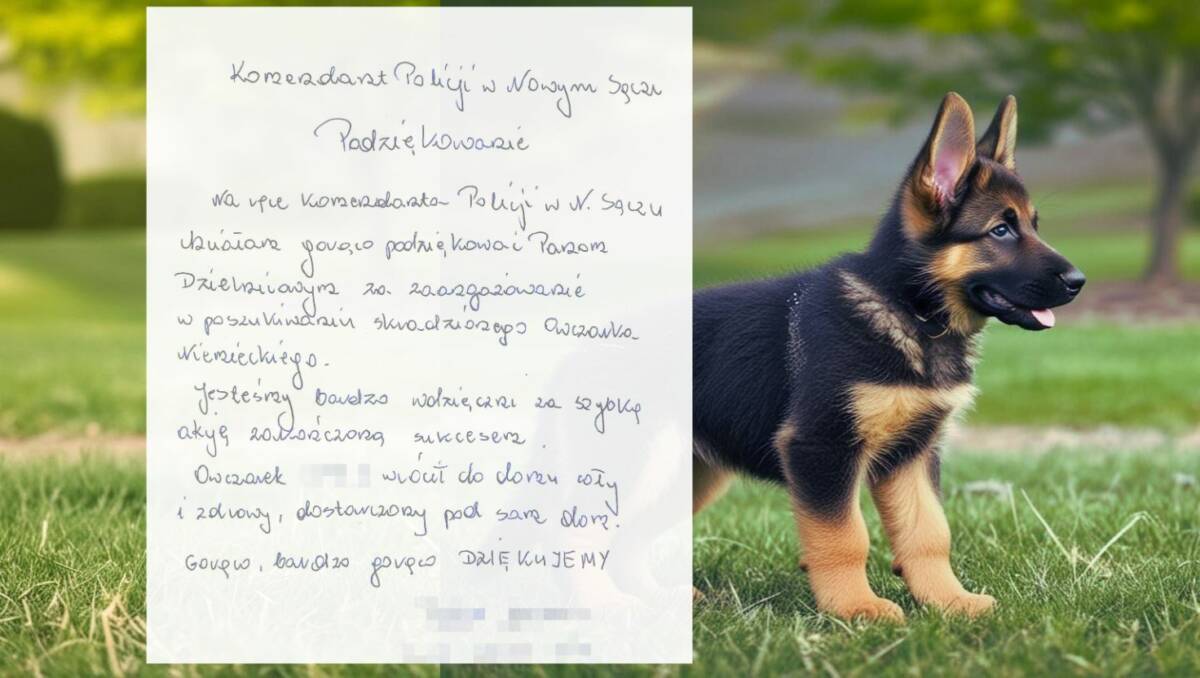 Komendant Policji w Nowym Sączu
Podziękowanie
Na ręce Komendanta Policji w N. Sączu
chciałam gorąco podziękować Panom
Dzielnicowym za zaangażowanie
w poszukiwaniu skradzionego Owczarka
Niemieckiego.
Jesteśmy bardzo wdzięczni za szybką
akcję zakończoną sukcesem.
Owczarek wrócił do domu cały
i zdrowy, dostarczony pod sam dom.
Gorąco, bardzo gorąco DZIĘKUJEMY